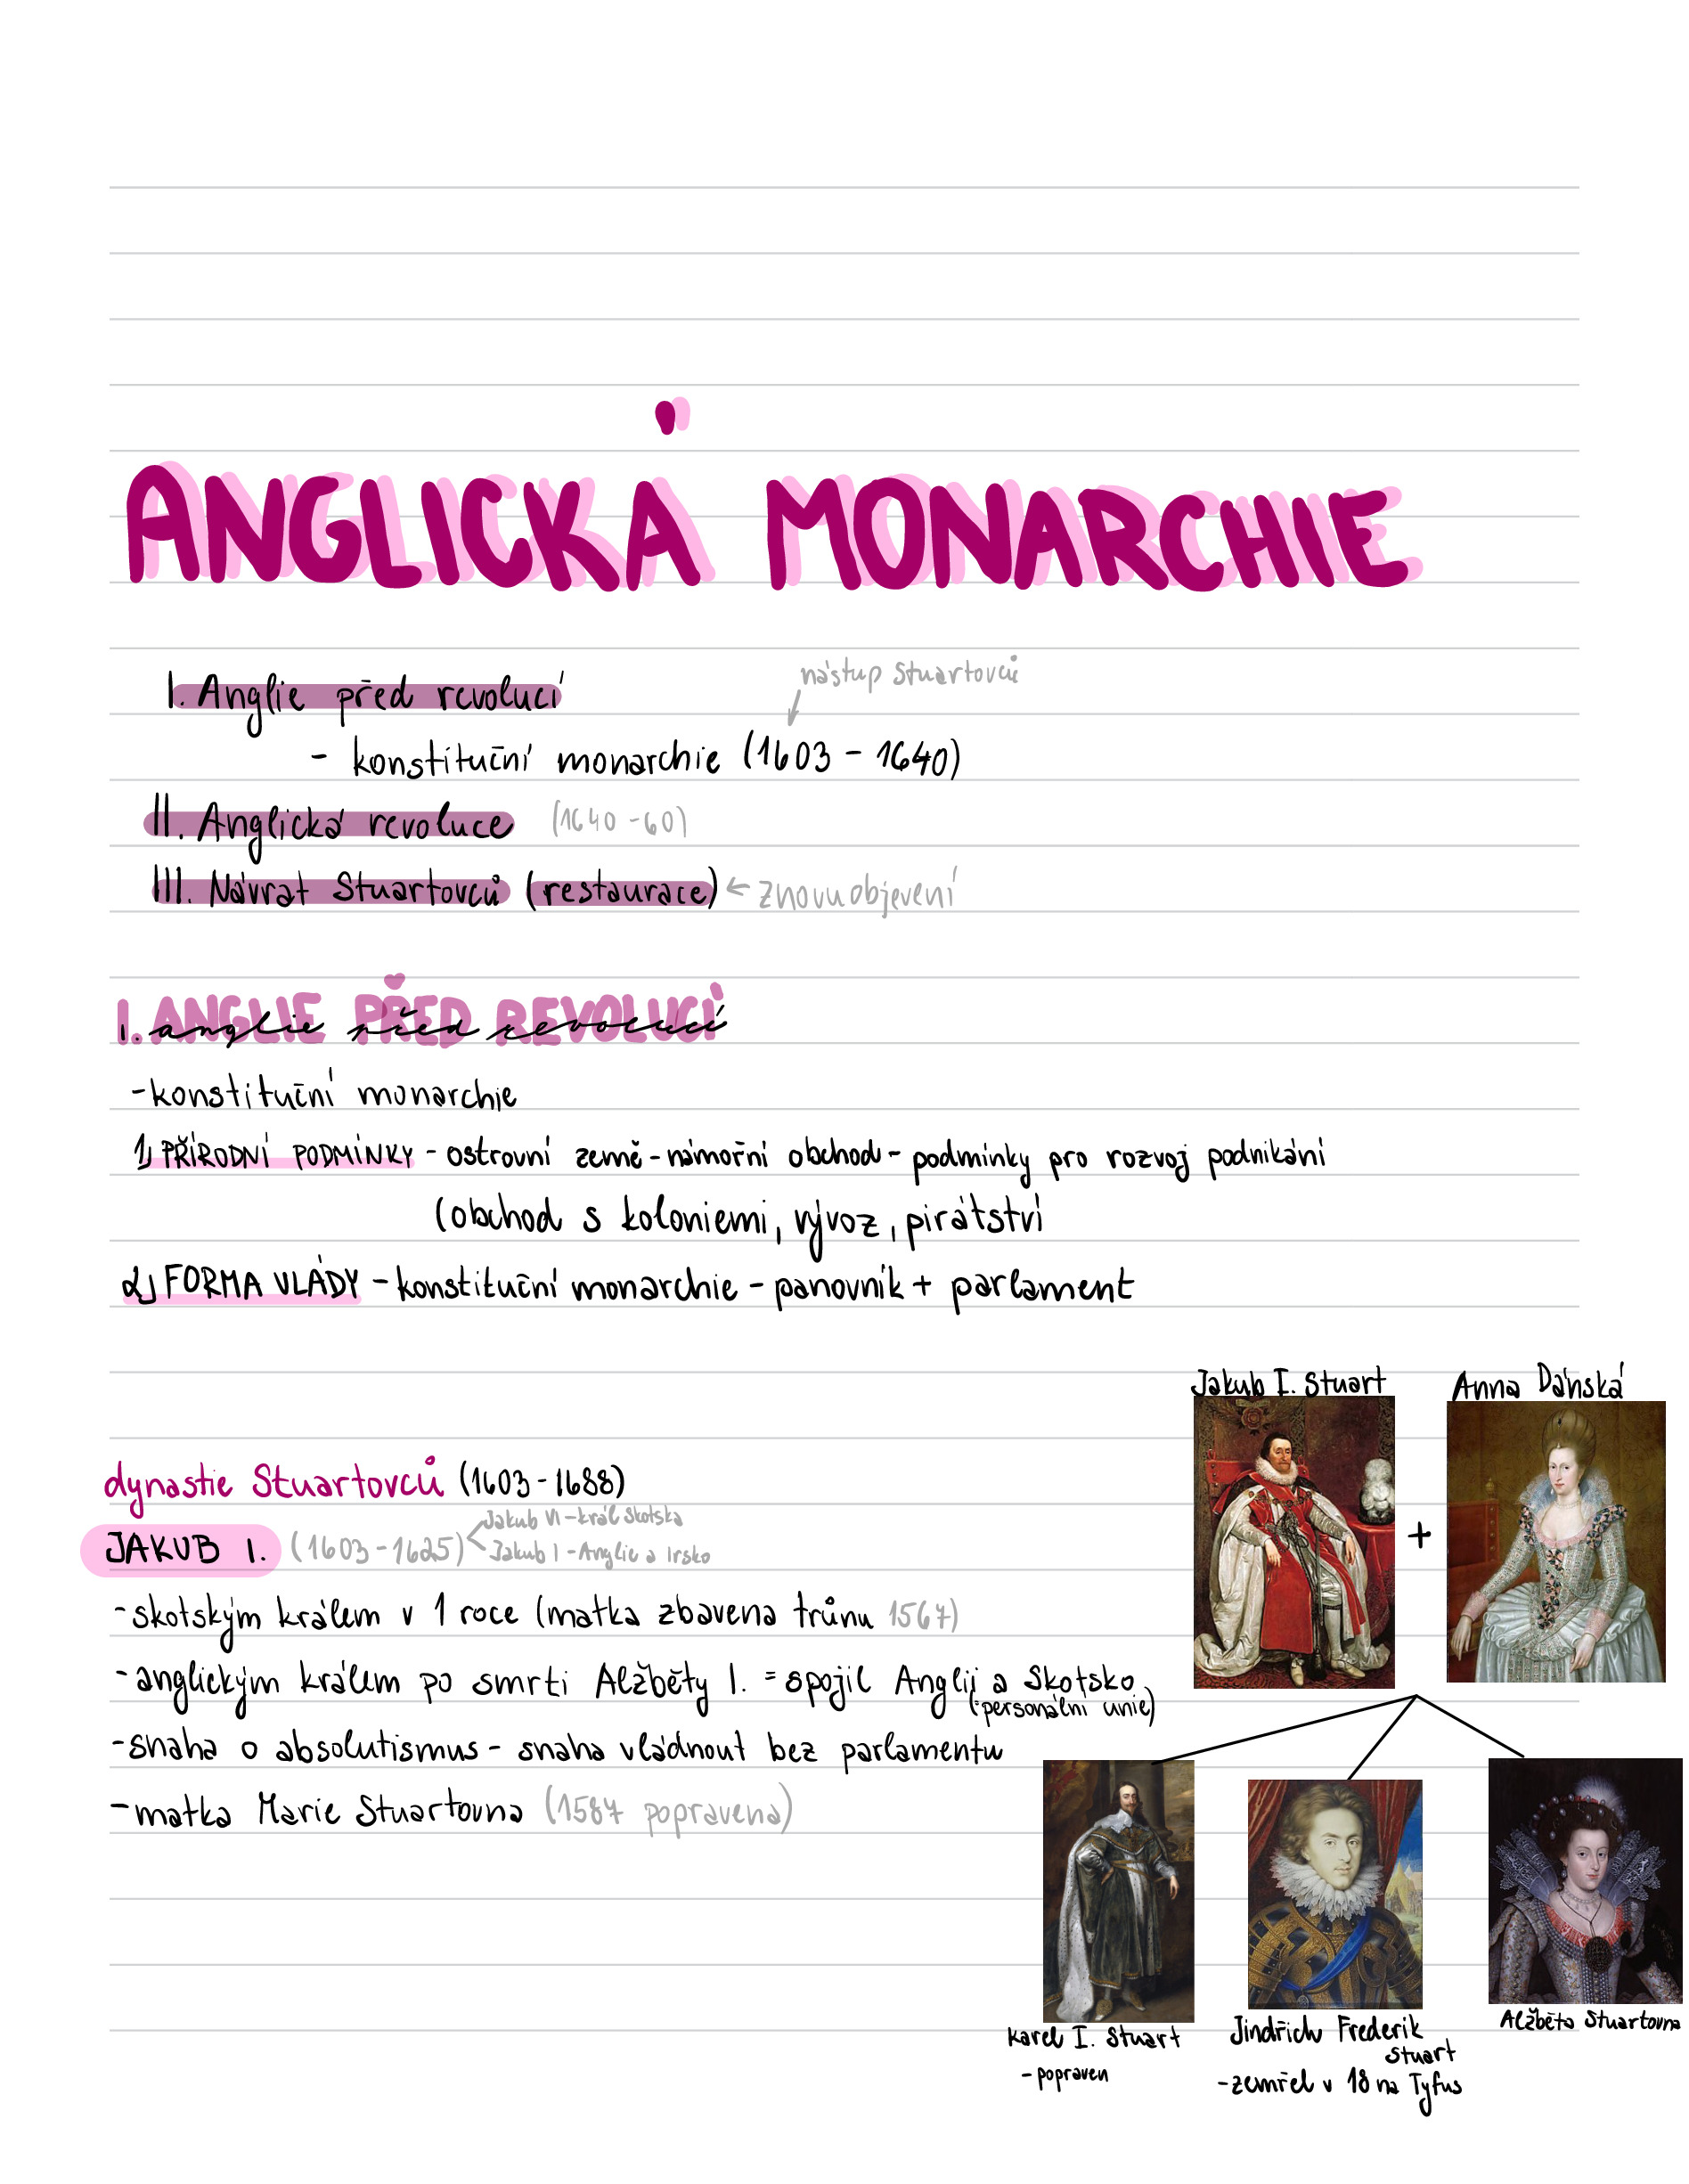 ANGLICKÁ MONARCHIE
nástup Stuartovců
I. Anglie před revolucí
- konstituční monarchie (1603 - 1640)
II. Anglická revoluce (1640 - 60)
III. Návrat Stuartovců (restaurace) ← znovuobjevení
I. ANGLIE PŘED REVOLUCÍ
1. anglie před revolucí
- konstituční monarchie
1) PŘÍRODNÍ PODMÍNKY - ostrovní země - námořní obchod - podmínky pro rozvoj podnikání
(obchod s koloniemi, vývoz, pirátství
2) FORMA VLÁDY - konstituční monarchie - panovník + parlament
Jakub I. Stuart
Anna Dánská
+
dynastie Stuartovců (1603 - 1688)
JAKUB I. (1603 - 1625)
Jakub VI - král Skotska
Jakub I - Anglie a Irsko
- skotským králem v 1 roce (matka zbavena trůnu 1567)
- anglickým králem po smrti Alžběty I. = spojil Anglii a Skotsko
(=personální unie)
- snaha o absolutismus - snaha vládnout bez parlamentu
- matka Marie Stuartovna (1587 popravena)
Karel I. Stuart
- popraven
Jindřich Frederik
Stuart
- zemřel v 18 na Tyfus
Alžběta Stuartovna